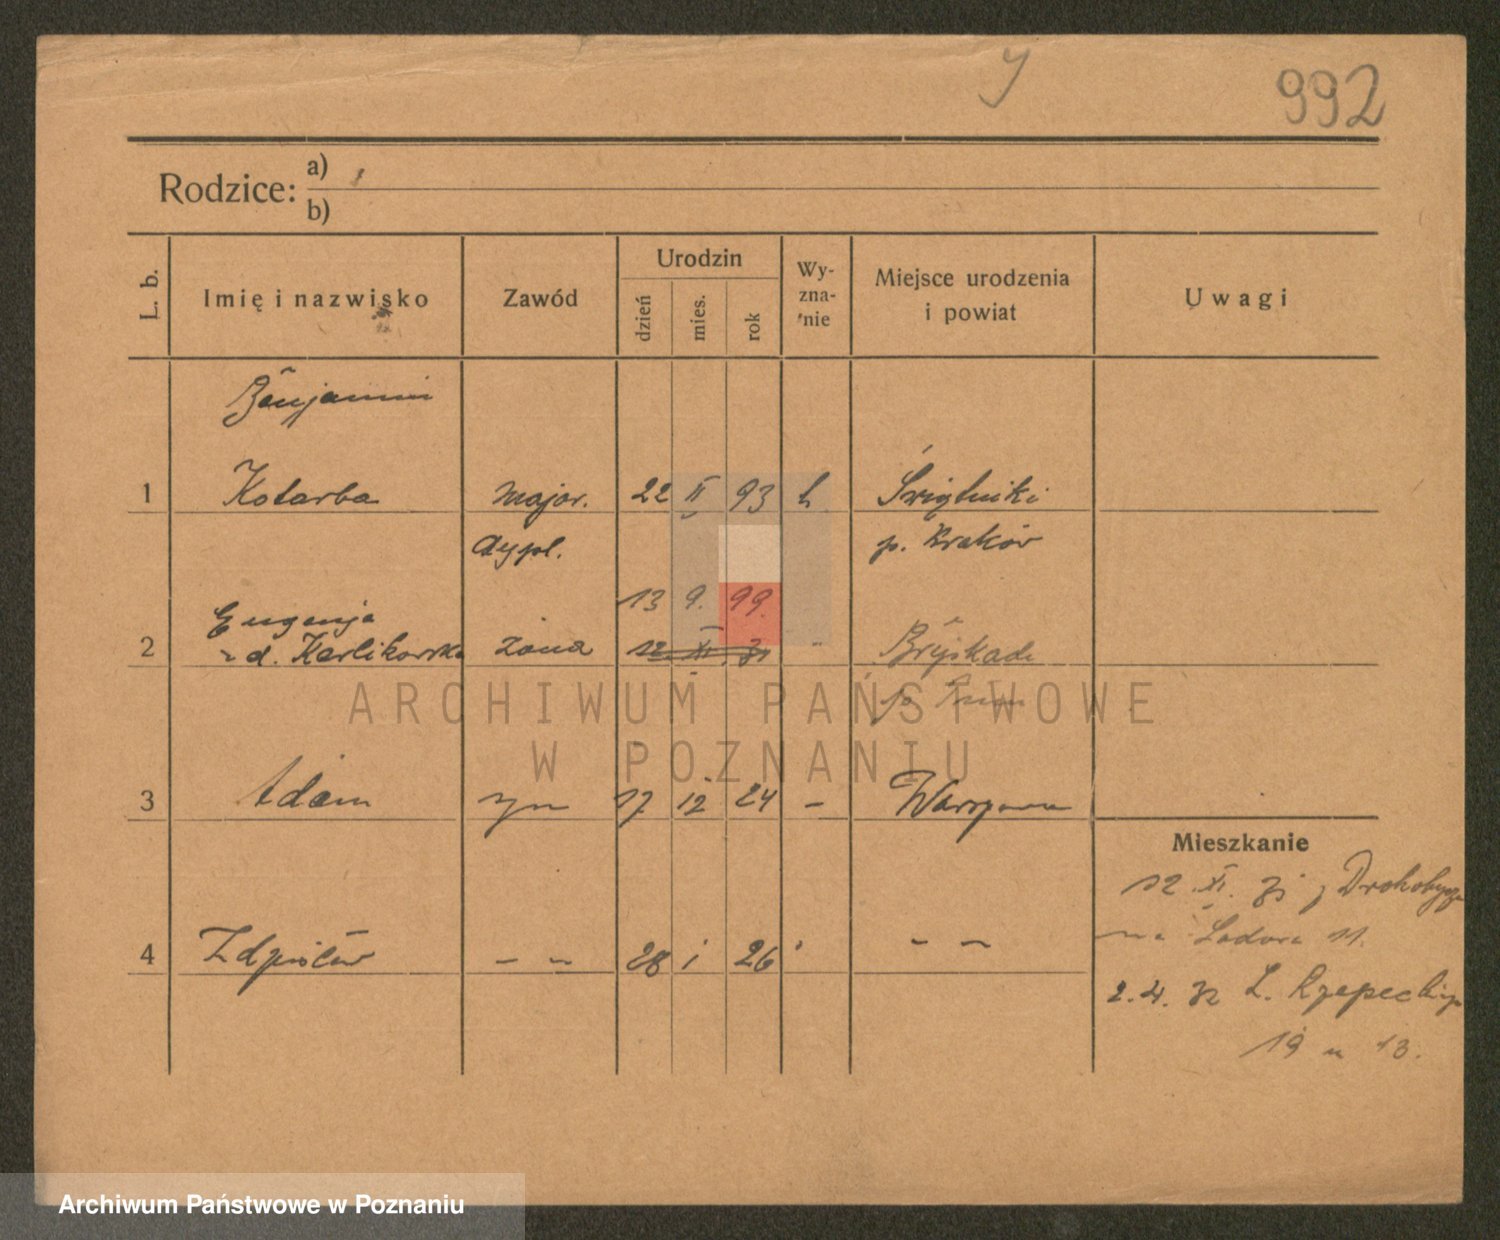 992
Rodzice: a)
b)
L. b. Imię i nazwisko Zawód Urodzin dzień mies. rok Wy-zna-nie Miejsce urodzenia i powiat Uwagi
Benjamin
1 Kotarba major. 22 II 93 Świątniki
dypl. p. Kraków
13 9. 99.
Eugenja
2 z d. Karlikowska żona 12 XI 31
ARCHIWUM PAŃSTWOWE
W POZNANIU
3 Adam syn 17 12 24 – Warszawa
Mieszkanie
12 XI. 31 z Drohobycza
4 Zdzisław – – 28 1 26 – –
11.
2.4.32 L. Rzepeckiego
19 m 13.
Archiwum Państwowe w Poznaniu